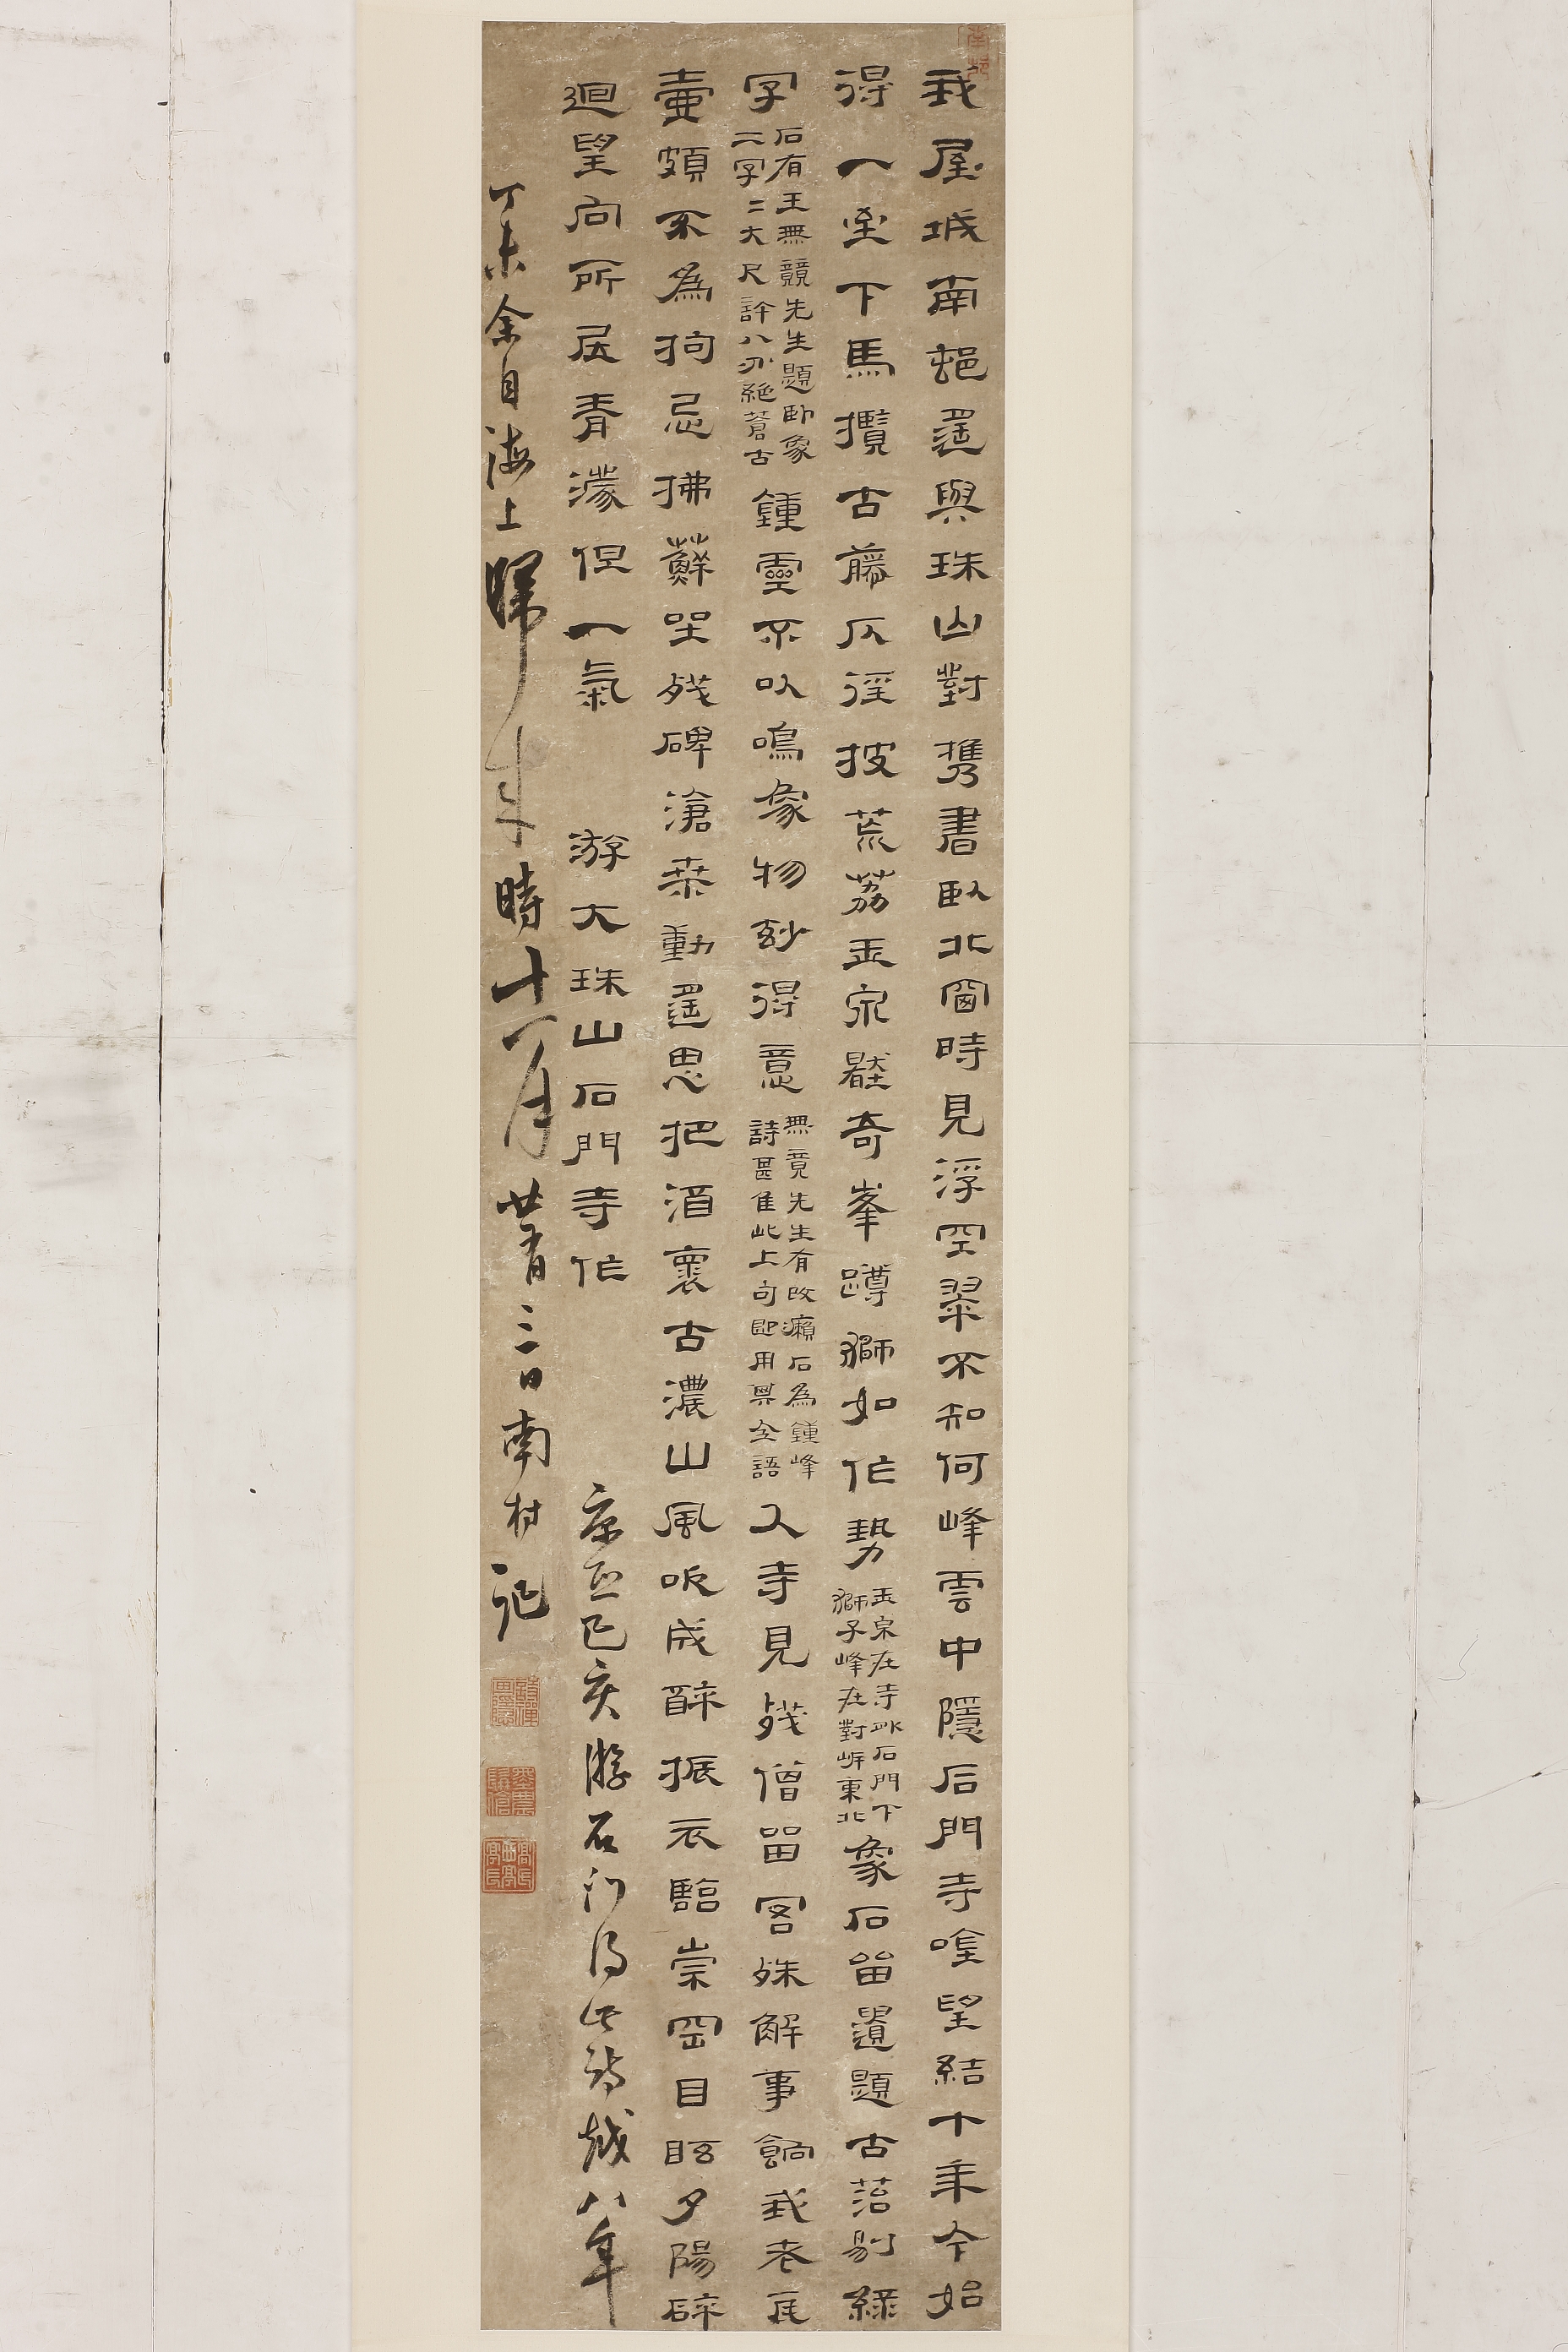 我屋城南邨遥與珠山對携書臥北窗時見浮空翠不知何峰雲中隱石門寺唯望結十年今始
得一坐下馬攬古藤仄徑披荒荔玉泉奇峯蹲獅如作勢
玉泉在寺此石門下
獅子峰在對岸東北
象石留遺題古蒼剔綠
字
石有王無競先生題卧象
二字二大尺許八分絶蒼古
鍾靈不以鳴象物玅得意
無竟先生有改癩石為鍾峰
詩甚佳此上句即用其全語
入寺見殘僧留客殊解事餉我老瓦
壷頗不為拘忌拂蘚坐殘碑滄桑動遥思把酒褱古濃山風吹成醉振衣臨崇岡目眩夕陽碎
迴望向所居青濛但一氣
游大珠山石門寺作
康熙己亥游石門得此詩越八年
丁未余自海上歸來時十一月廿有二日南村記